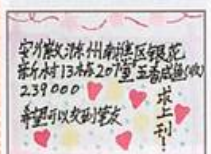 安徽滁州南谯区银花
新村13栋201室 王春成鱼(收)
239000
希望可以交到笔友
求上刊!